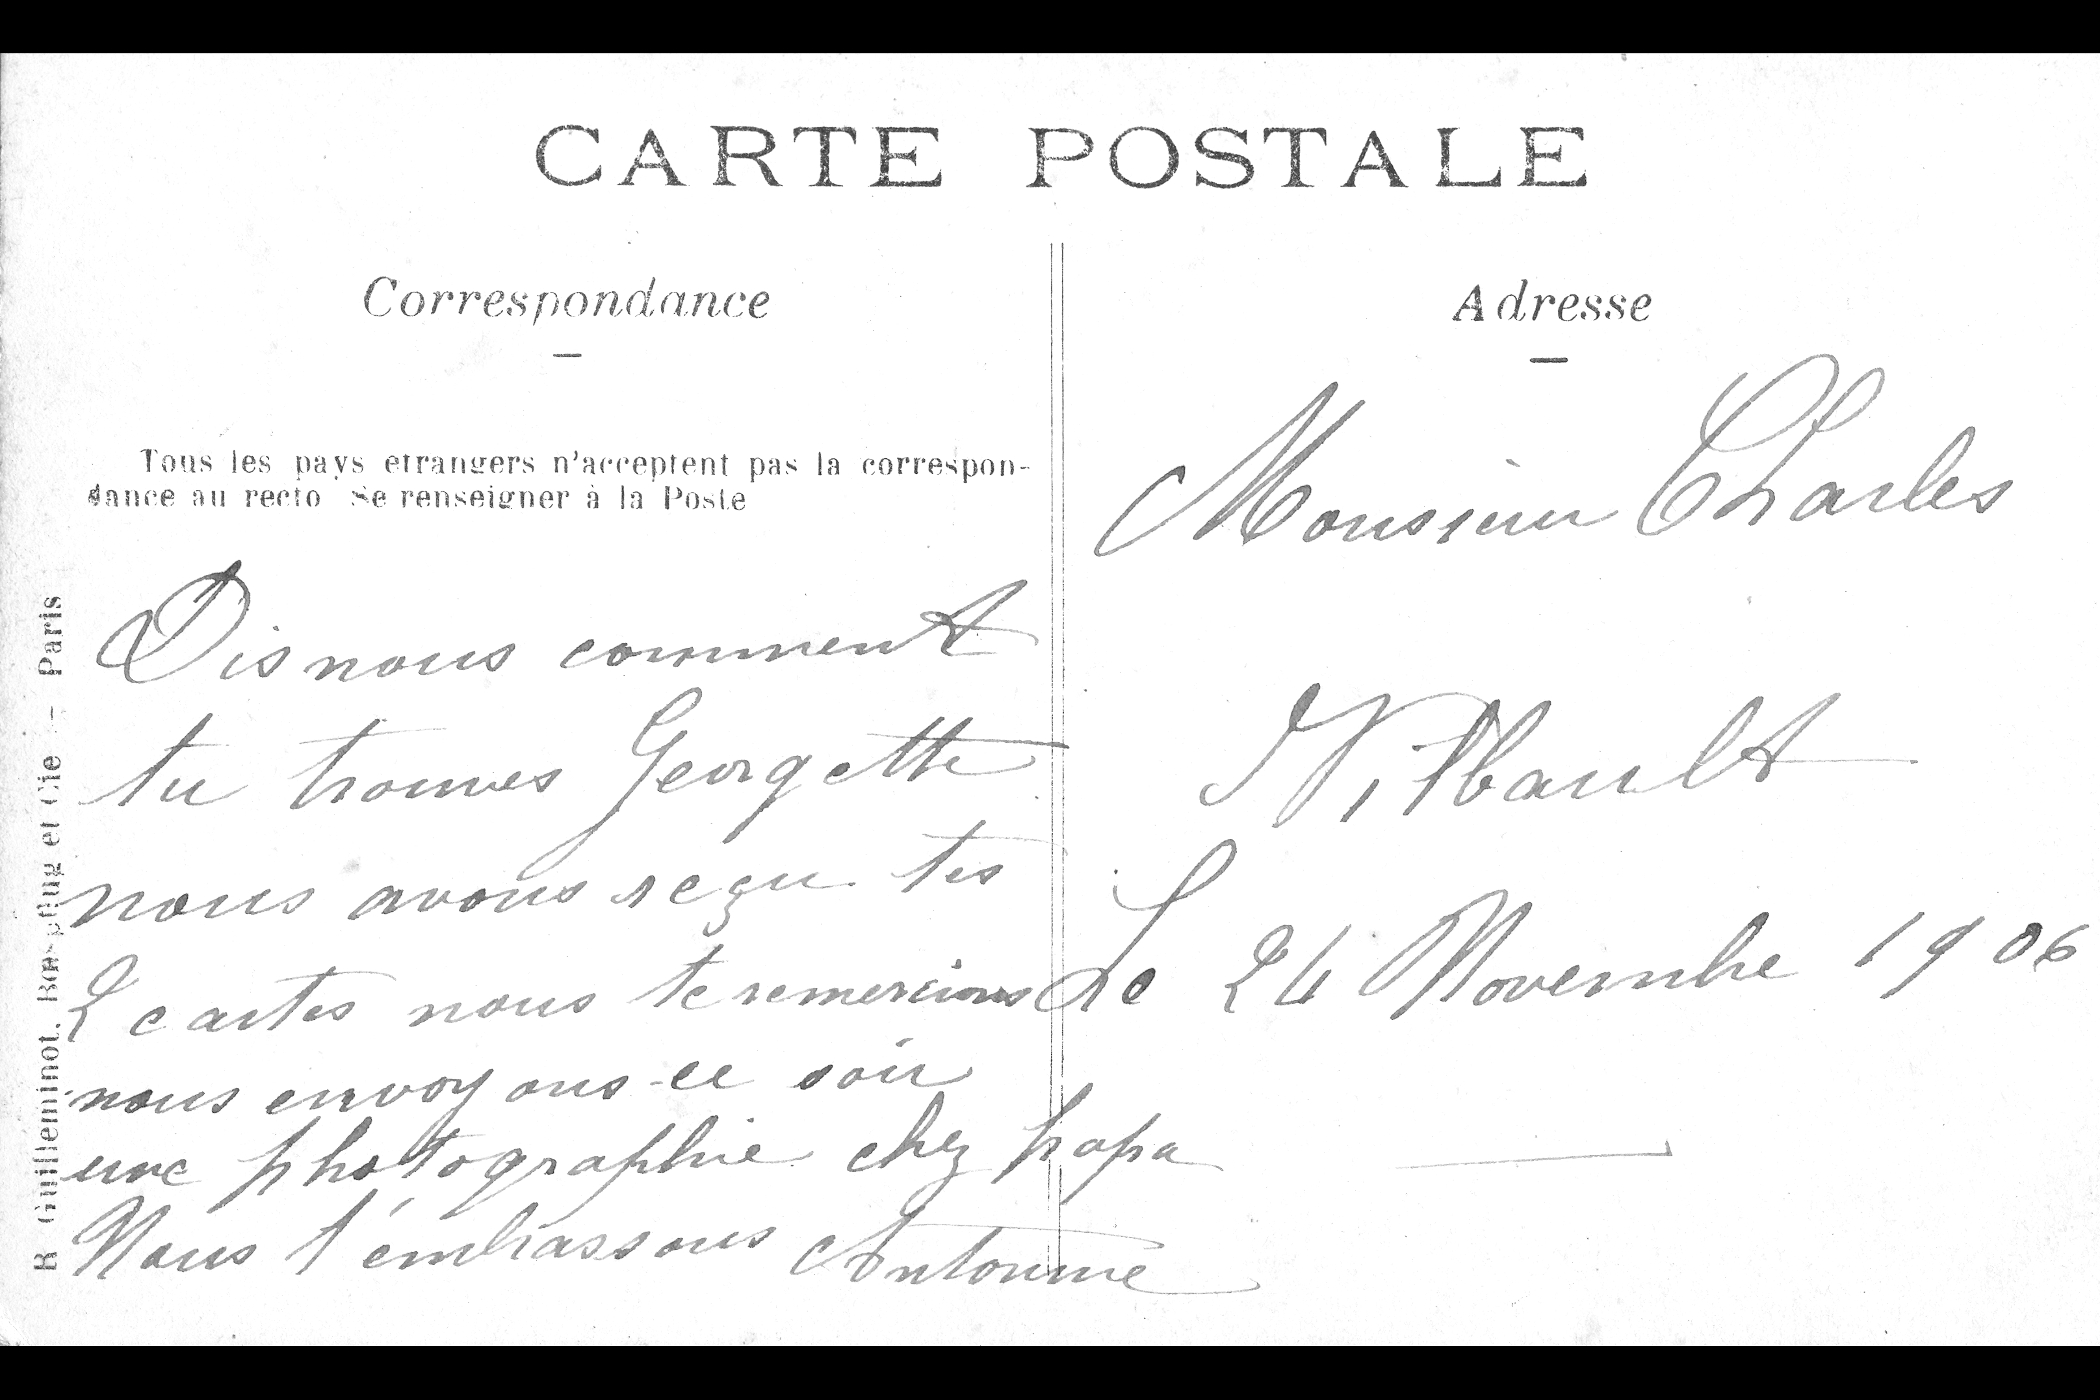 CARTE POSTALE
Correspondance
Tous les pays etrangers n'acceptent pas la correspon-
dance au recto Se renseigner à la Poste
Dis nous comment
tu trouves Georgette
nous avons reçu tes
2 cartes nous te remercions
nous envoyons ce soir
une photographie chez papa
Nous t'embrassons Antonine
R Guilleminot, Bœspflug et Cie - Paris
Adresse
Monsieur Charles
Le 24 Novembre 1906